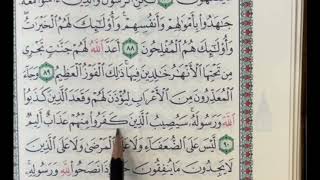 جَٰهَدُوا۟ بِأَمْوَٰلِهِمْ وَأَنفُسِهِمْ وَأُو۟لَٰٓئِكَ لَهُمُ ٱلْخَيْرَٰتُ
وَأُو۟لَٰٓئِكَ هُمُ ٱلْمُفْلِحُونَ ٨٨ أَعَدَّ ٱللَّهُ لَهُمْ جَنَّٰتٍ تَجْرِى
مِن تَحْتِهَا ٱلْأَنْهَٰرُ خَٰلِدِينَ فِيهَا ذَٰلِكَ ٱلْفَوْزُ ٱلْعَظِيمُ ٨٩ وَجَآءَ
ٱلْمُعَذِّرُونَ مِنَ ٱلْأَعْرَابِ لِيُؤْذَنَ لَهُمْ وَقَعَدَ ٱلَّذِينَ كَذَبُوا۟
ٱللَّهَ وَرَسُولَهُۥ سَيُصِيبُ ٱلَّذِينَ كَفَرُوا۟ مِنْهُمْ عَذَابٌ أَلِيمٌ
٩٠ لَّيْسَ عَلَى ٱلضُّعَفَآءِ وَلَا عَلَى ٱلْمَرْضَىٰ وَلَا عَلَى ٱلَّذِينَ
لَا يَجِدُونَ مَا يُنفِقُونَ حَرَجٌ إِذَا نَصَحُوا۟ لِلَّهِ وَرَسُولِهِۦ